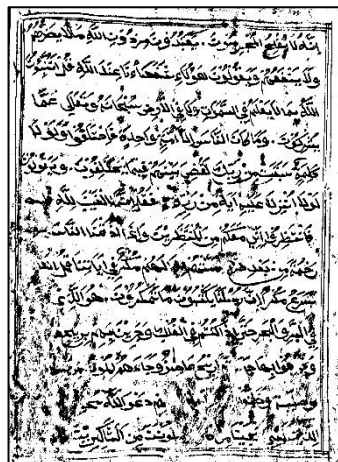 إنه لا يفلح المجرمون ويعبدون من دون الله ما لا يضرهم
ولا ينفعهم ويقولون هؤلاء شفعاؤنا عند الله قل أتنبئون
الله بما لا يعلم في السموات ولا في الأرض سبحانه وتعالى عما
يشركون وما كان الناس إلا أمة واحدة فاختلفوا ولولا
كلمة سبقت من ربك لقضي بينهم فيما فيه يختلفون ويقولون
لولا أنزل عليه آية من ربه فقل إنما الغيب لله
فانتظروا إني معكم من المنتظرين وإذا أذقنا الناس
رحمة من بعد ضراء مستهم إذا لهم مكر في آياتنا قل الله
أسرع مكرا إن رسلنا يكتبون ما تمكرون هو الذي
في البر والبحر حتى إذا كنتم في الفلك وجرين بهم بريح
وفرحوا بها ريح عاصف وجاءهم الموج
دعوا الله
من الشاكرين